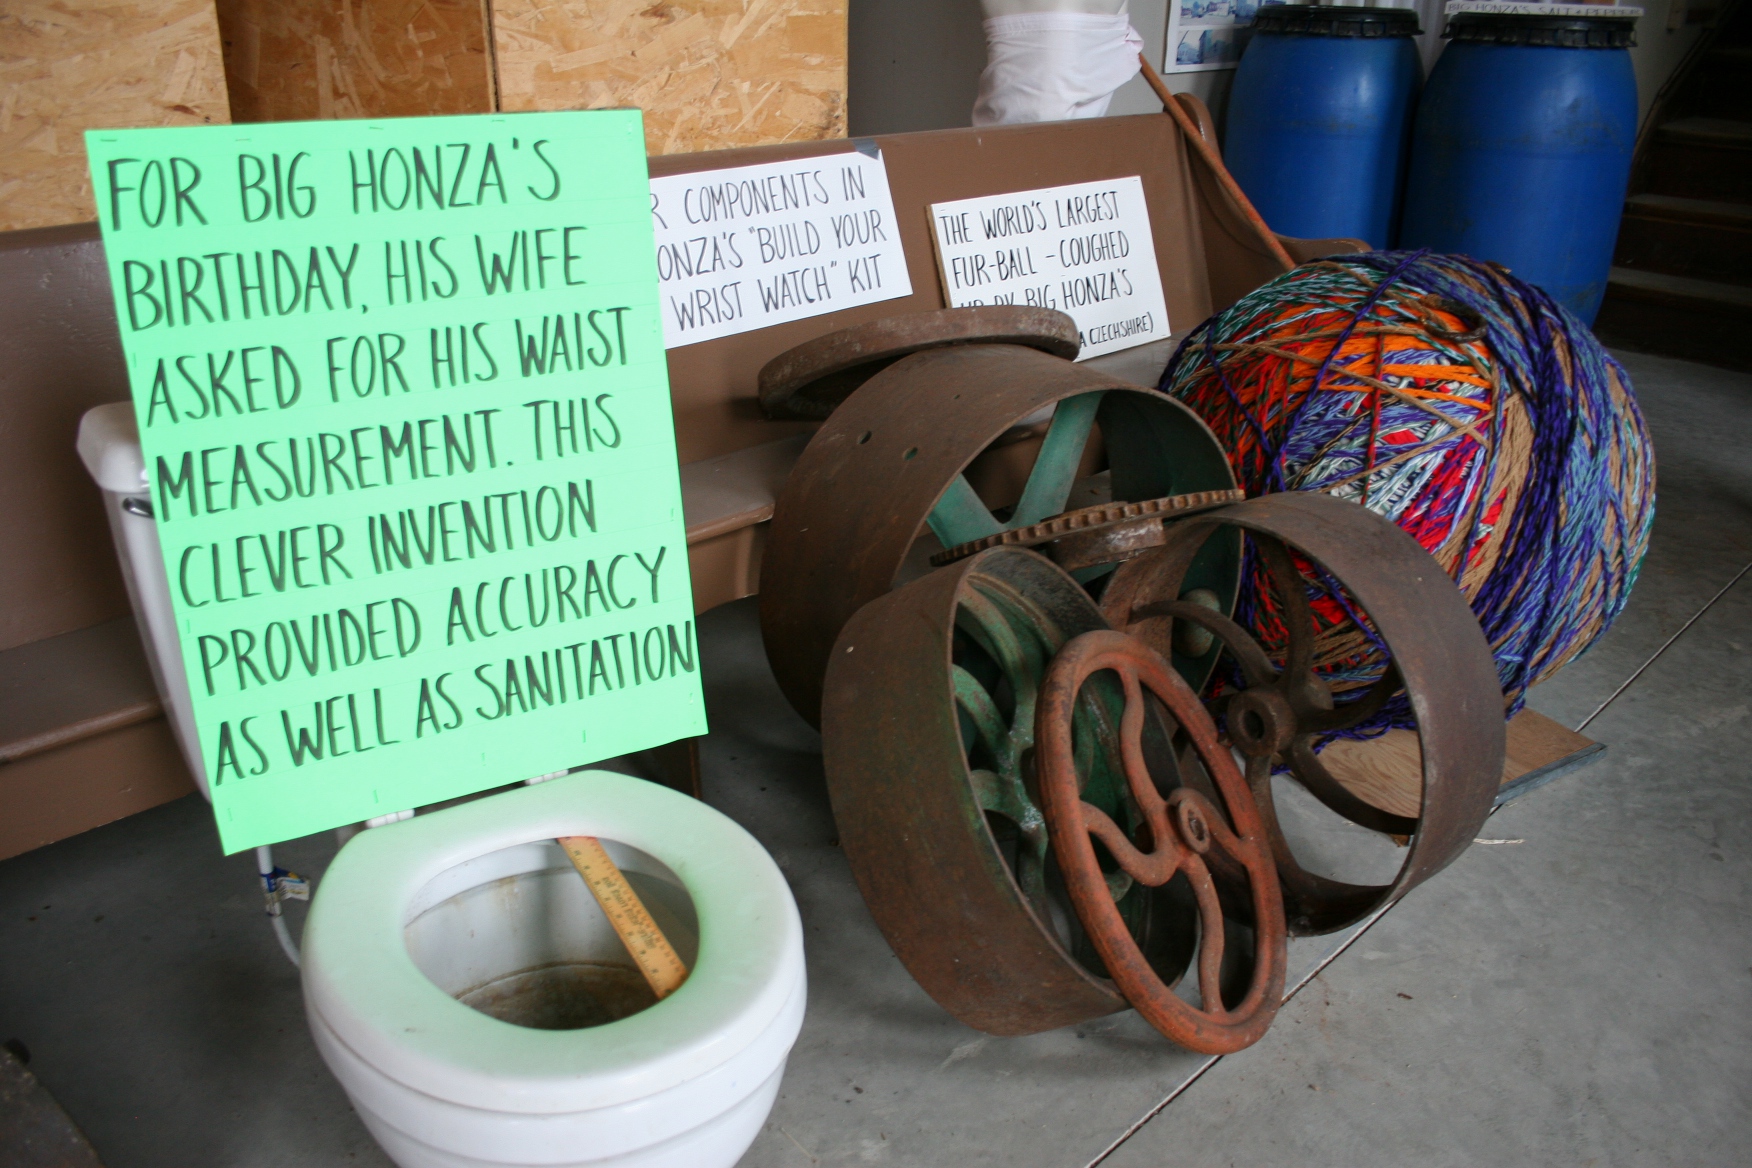 FOR BIG HONZA'S
BIRTHDAY, HIS WIFE
ASKED FOR HIS WAIST
MEASUREMENT. THIS
CLEVER INVENTION
PROVIDED ACCURACY
AS WELL AS SANITATION
COMPONENTS IN
"BUILD YOUR
WRIST WATCH" KIT
THE WORLD'S LARGEST
FUR-BALL - COUGHED
UP BY BIG HONZA'S
CZECHSHIRE)
BIG HONZA'S SALT & PEPPER